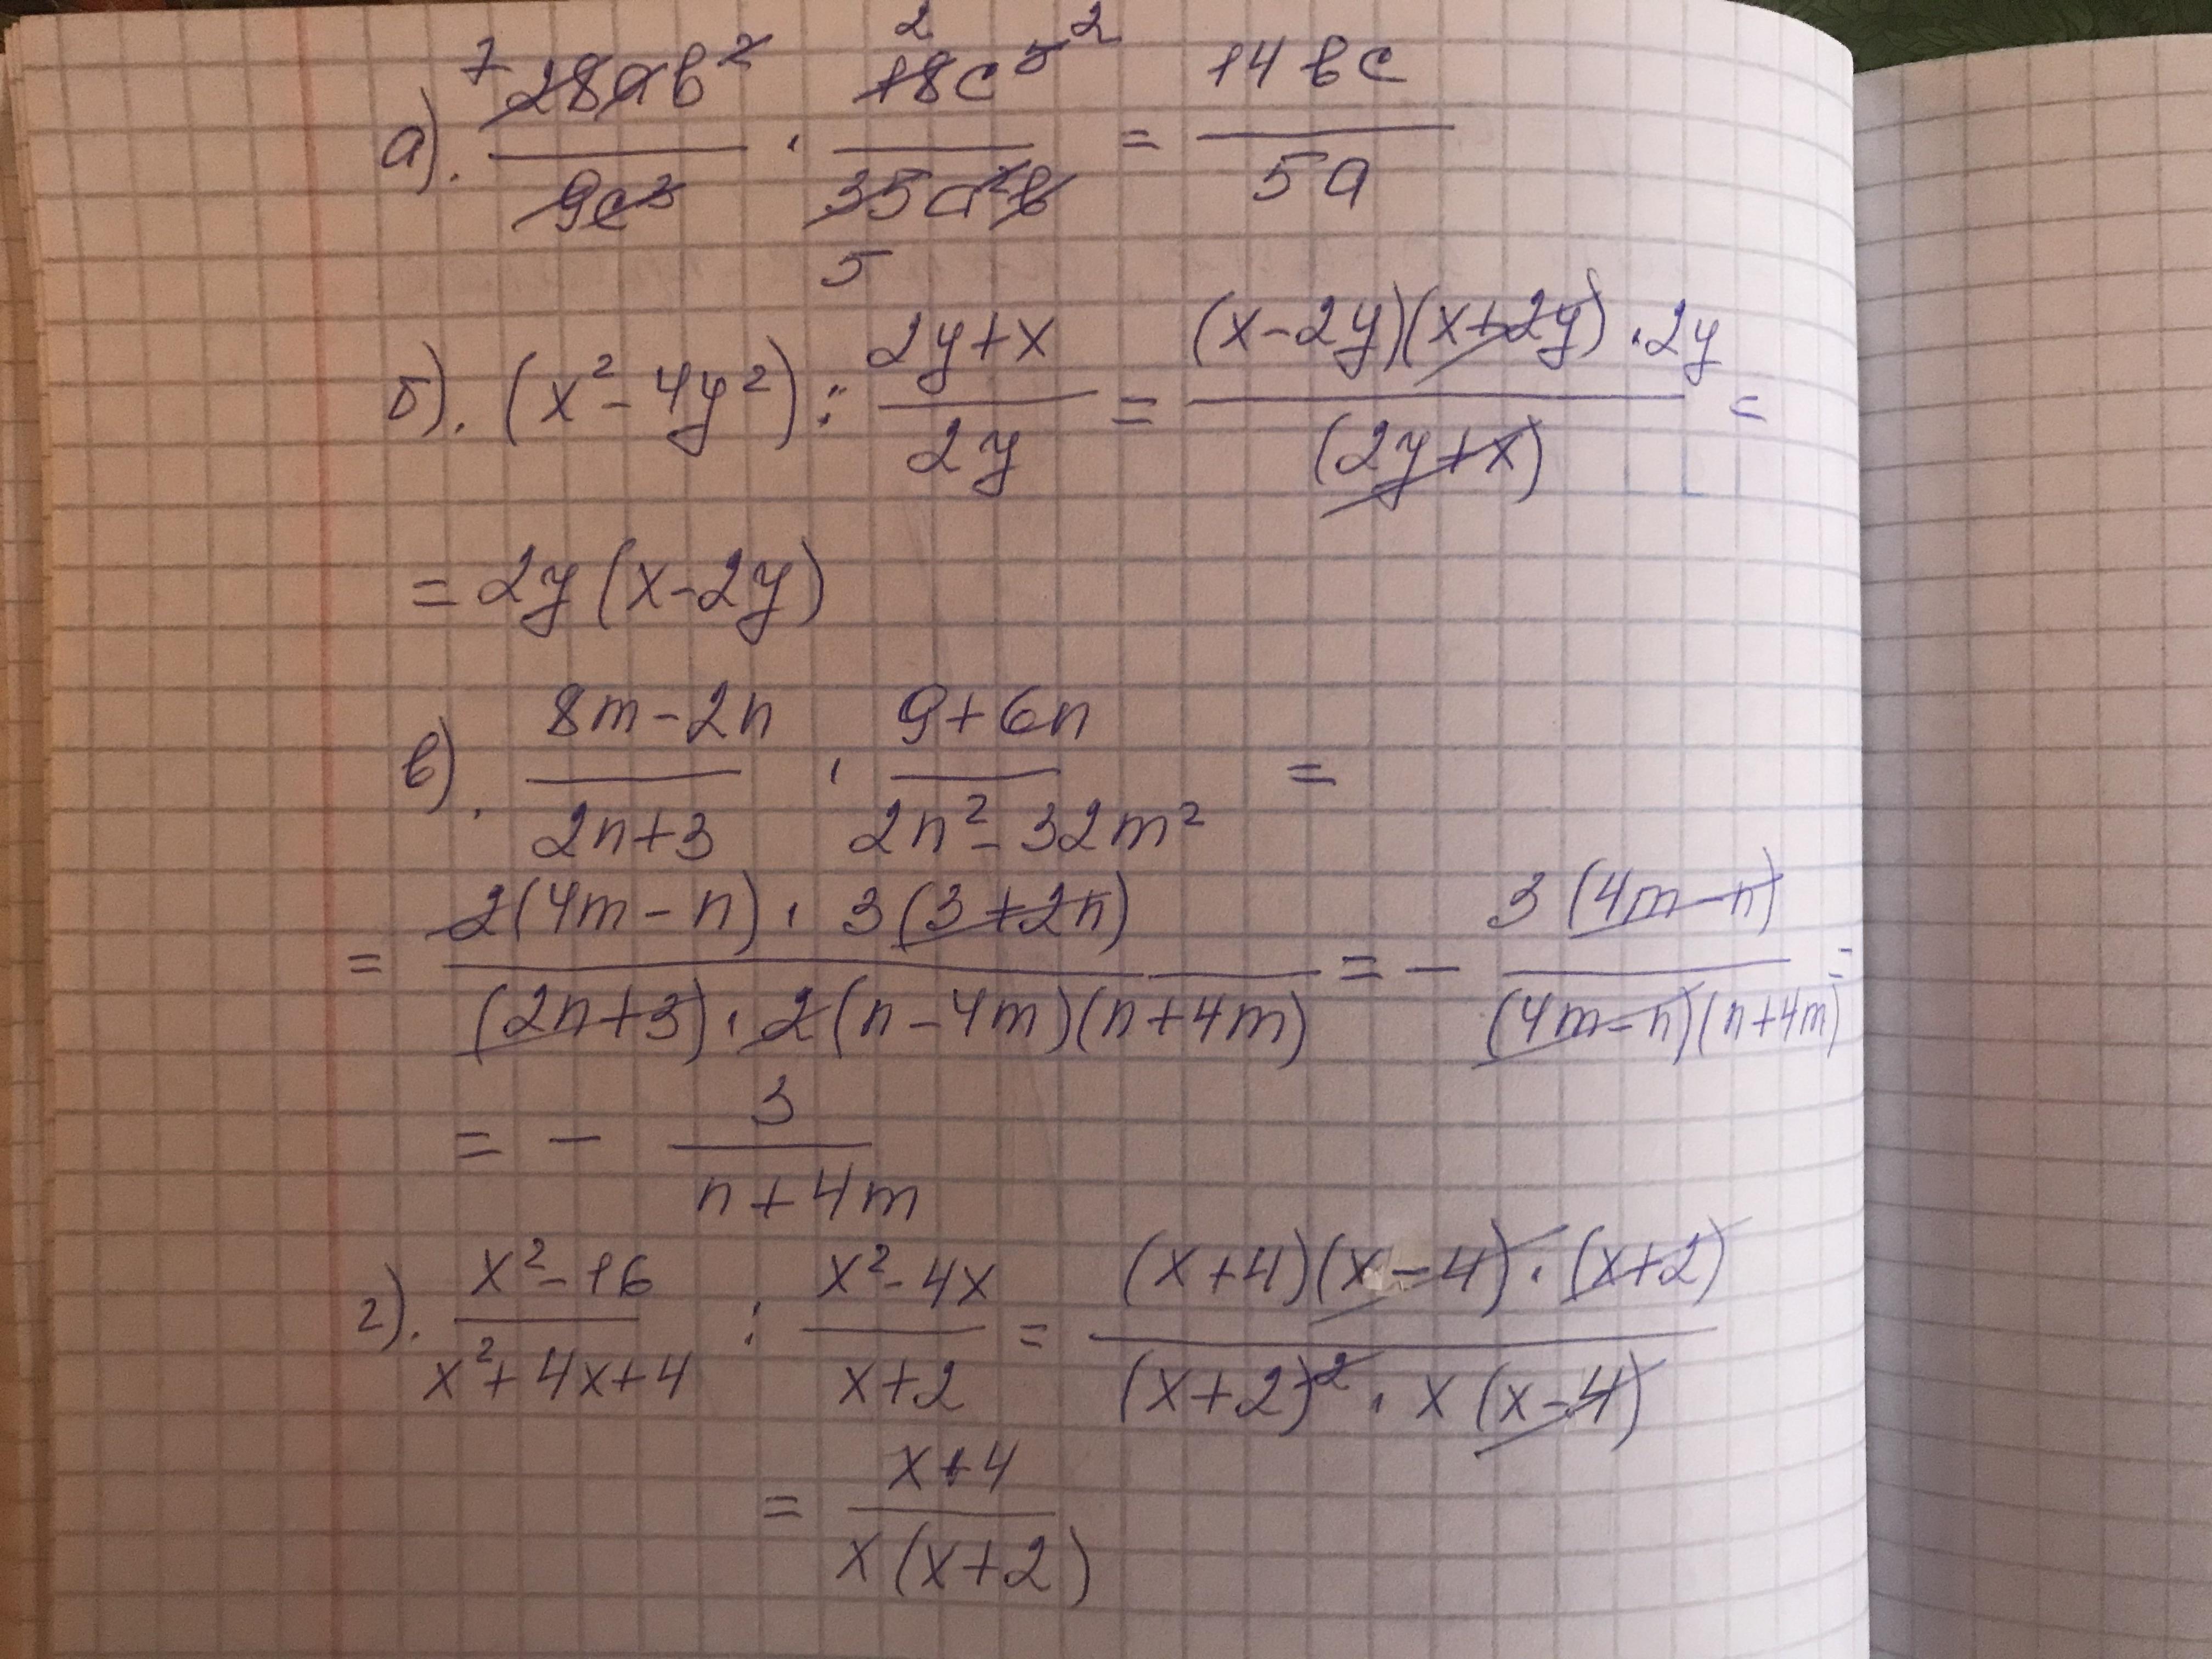 а). 7 28ab² / 9c³ · 2 18c⁵ ² / 35a²b 5 = 14bc / 5a
б). (x² - 4y²) : (2y+x) / 2y = (x-2y)(x+2y) · 2y / (2y+x) =
= 2y(x-2y)
в). (8m-2n) / (2n+3) · (9+6n) / (2n²-32m²) =
= 2(4m-n) · 3(3+2n) / (2n+3) · 2(n-4m)(n+4m) = - 3(4m-n) / (4m-n)(n+4m) =
= - 3 / (n+4m)
г). (x²-16) / (x²+4x+4) : (x²-4x) / (x+2) = (x+4)(x-4) · (x+2) / (x+2)² · x(x-4)
= (x+4) / x(x+2)